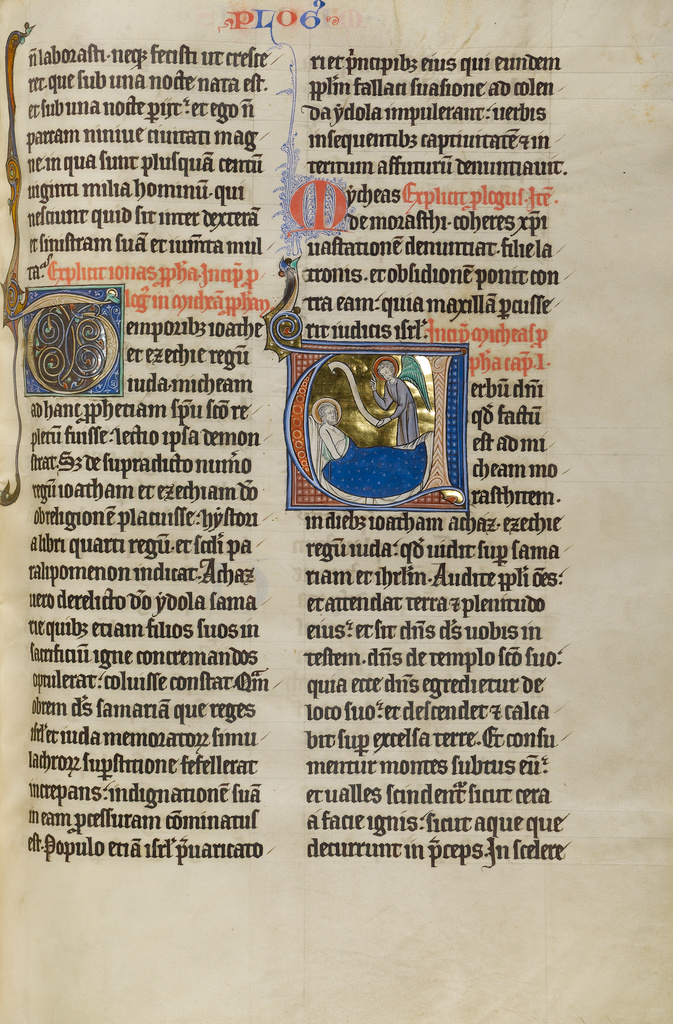 PLOG᷒
n̄ laborasti· neq; fecisti ut cresce
ret· que sub una nocte nata est·
et sub una nocte p̱ijt: et ego n̄
parcam niniue ciuitati mag
ne· in qua sunt plusquā centū
uiginti milia hominū· qui
nesciunt quid sit inter dexterā
et sinistram suā et iumta mul
ta: Explicit ionas ꝓpha· Incip̄ p̄
log᷒ in micheā ꝓpħam
Temporibꝫ ioathe
et ezechie regū
iuda· micheam
ad hanc ꝓphetiam sp̄u sc̄o re
pletū fuisse· lectio ipsa demon
strat· Sꝫ de supradicto nūīo
regū ioatham et ezechiam dō
ob religionē placuisse· hystori
a libri quarti regū· et sc̄di pa
ralipomenon indicat· Achaz
uero derelicto dō ydola sama
rie quibꝫ etiam filios suos in
sacrificiū igne concremandos
optulerat· coluisse constat· Qm̄
obrem d̄s samariā que reges
isrl̄ et iuda memoratorꝝ simu
lachrorꝝ suꝑstitione fefellerat
increpans· indignationē suā
in eam ꝓcessuram cōminatus
est· Populo etiā isrl̄ p̄uaricato
ri et p̄ncipibꝫ eius qui eundem
ppl̄m fallaci suasione ad colen
da ydola impulerant· uerbis
insequentibꝫ captiuitatē ⁊ in
teritum affuturū denuntiauit.
Mycheas Explicit ꝓlogus· Itē·
de morasthi· coheres xp̄i
uastationē denuntiat· filie la
tronis· et obsidionē ponit con
tra eam· quia maxillā ꝑcusse
rit iudicis isrl̄· Incip̄ mycheas p
pha cap̄· I·
Uerbū dn̄i
qd̄ factū
est ad mi
cheam mo
rasthitem·
in diebꝫ ioatham achaz· ezechie
regū iuda· qd̄ uidit suꝑ sama
riam et ihrl̄m· Audite ppl̄i ōes:
et attendat terra ⁊ plenitudo
eius: et sit dn̄s d̄s uobis in
testem· dn̄s de templo sc̄o suo:
quia ecce dn̄s egredietur de
loco suo: et descendet ⁊ calca
bit suꝑ excelsa terre· Et consu
mentur montes subtus eū:
et ualles scindentᷣ sicut cera
a facie ignis: sicut aque que
decurrunt in p̄ceps· In scelere